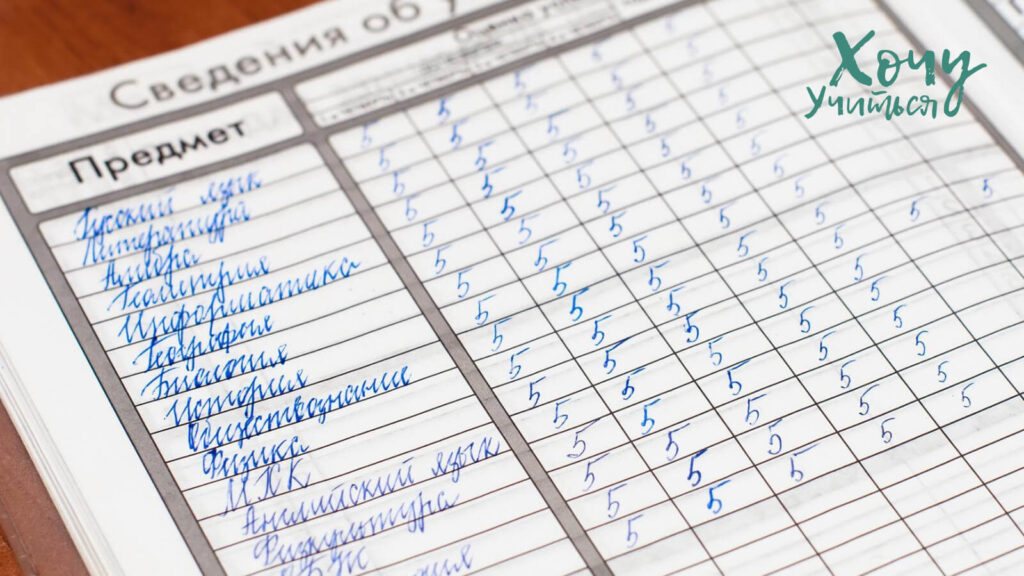 Сведения об у
Оценка
Предмет
Русский язык 5 5 5 5 5
Литература 5 5 5 5 5
Алгебра 5 5 5 5 5
Геометрия 5 5 5 5 5
Информатика 5 5 5 5 5
География 5 5 5 5 5
Биология 5 5 5 5 5
История 5 5 5 5 5
Обществознание 5 5 5 5 5
Физика 5 5 5 5 5
МХК 5 5 5 5 5
Английский язык 5 5 5 5 5
Физкультура 5 5 5 5 5
ОБЖ 5 5 5
Хочу
Учиться